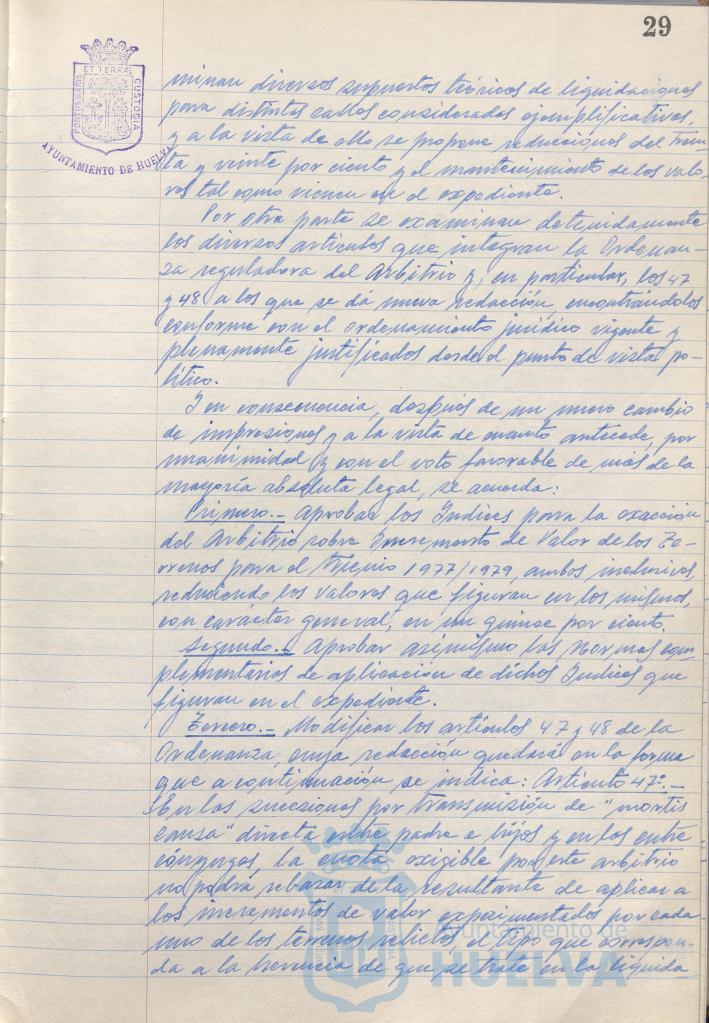 29
PORTUS MARIS ET TERRAE CUSTODIA
AYUNTAMIENTO DE HUELVA
minan diversos supuestos teóricos de liquidaciones
para distintas calles consideradas ejemplificativas,
y a la vista de ello se propone reducciones del trein-
ta y veinte por ciento y el mantenimiento de los valo-
res tal como vienen en el expediente.
Por otra parte se examinan detenidamente
los diversos artículos que integran la Ordenan-
za reguladora del Arbitrio y, en particular, los 47
y 48 a los que se dá nueva redacción, encontrándolos
conforme con el ordenamiento jurídico vigente y
plenamente justificados desde el punto de vista po-
lítico.
Y en consecuencia, después de un nuevo cambio
de impresiones y a la vista de cuanto antecede, por
unanimidad y con el voto favorable de más de la
mayoría absoluta legal, se acuerda:
Primero.- Aprobar los Indices para la exacción
del Arbitrio sobre Incremento de Valor de los Te-
rrenos para el trienio 1977/1979, ambos inclusives,
reduciendo los valores que figuran en los mismos,
con carácter general, en un quince por ciento.
Segundo.- Aprobar asimismo las Normas com-
plementarias de aplicación de dichos Indices que
figuran en el expediente.
Tercero.- Modificar los artículos 47 y 48 de la
Ordenanza, cuya redacción quedará en la forma
que a continuación se indica: Artículo 47º.-
En las sucesiones por transmisión de "mortis
causa" directa entre padre e hijos y en los entre
cónyuges, la cuota exigible por este arbitrio
no podrá rebazar de la resultante de aplicar a
los incrementos de valor experimentados por cada
uno de los terrenos relictos, el tipo que correspon-
da a la herencia de que se trate en la liquida
Ayuntamiento de
HUELVA